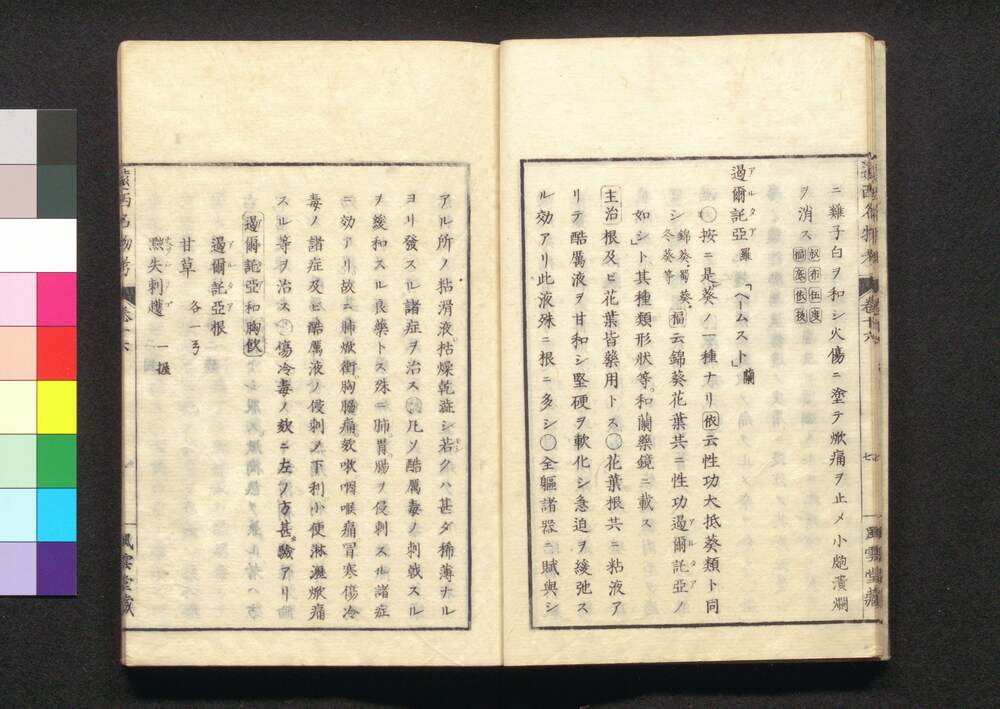 ニ雞子白ヲ和シ火傷ニ塗テ焮痛ヲ止メ小皰潰爛
ヲ消ス
過爾託亞アルタア羅「ヘームスト」蘭
○按ニ是葵ノ一種ナリ依云性功大抵葵類ト同
シ錦葵蜀葵冬葵等福云錦葵花葉共ニ性功過爾託亞アルタアノ
如シ」ト其種類形狀等和蘭藥鏡ニ載ス
主治根及ビ花葉皆藥用トス○花葉根共ニ粘液ア
リテ酷厲液ヲ甘和シ堅硬ヲ軟化シ急迫ヲ緩弛ス
ル効アリ此液殊ニ根ニ多シ○全軀諸器ニ賦與シ
七
風雲堂藏
アル所ノ粘滑液枯燥乾澁シ若クハ甚ダ稀薄ナル
ヨリ發スル諸症ヲ治ス○凡ソ酷厲毒ノ刺戟スル
ヲ緩和スル良藥トス殊ニ肺胃腸ヲ侵刺スル諸症
ニ効アリ故ニ肺焮衝胸腸痛欬嗽咽喉痛冒寒傷冷
毒ノ諸症及ビ酷厲液ノ侵刺ノ下利小便淋瀝焮痛
スル等ヲ治ス○傷冷毒ノ欬ニ左ノ方甚驗アリ
過爾託亞和胸飲
過爾託亞アルタア根
甘草 各一弓
㷱失刺蘧 一握
卷十六
風雲堂藏